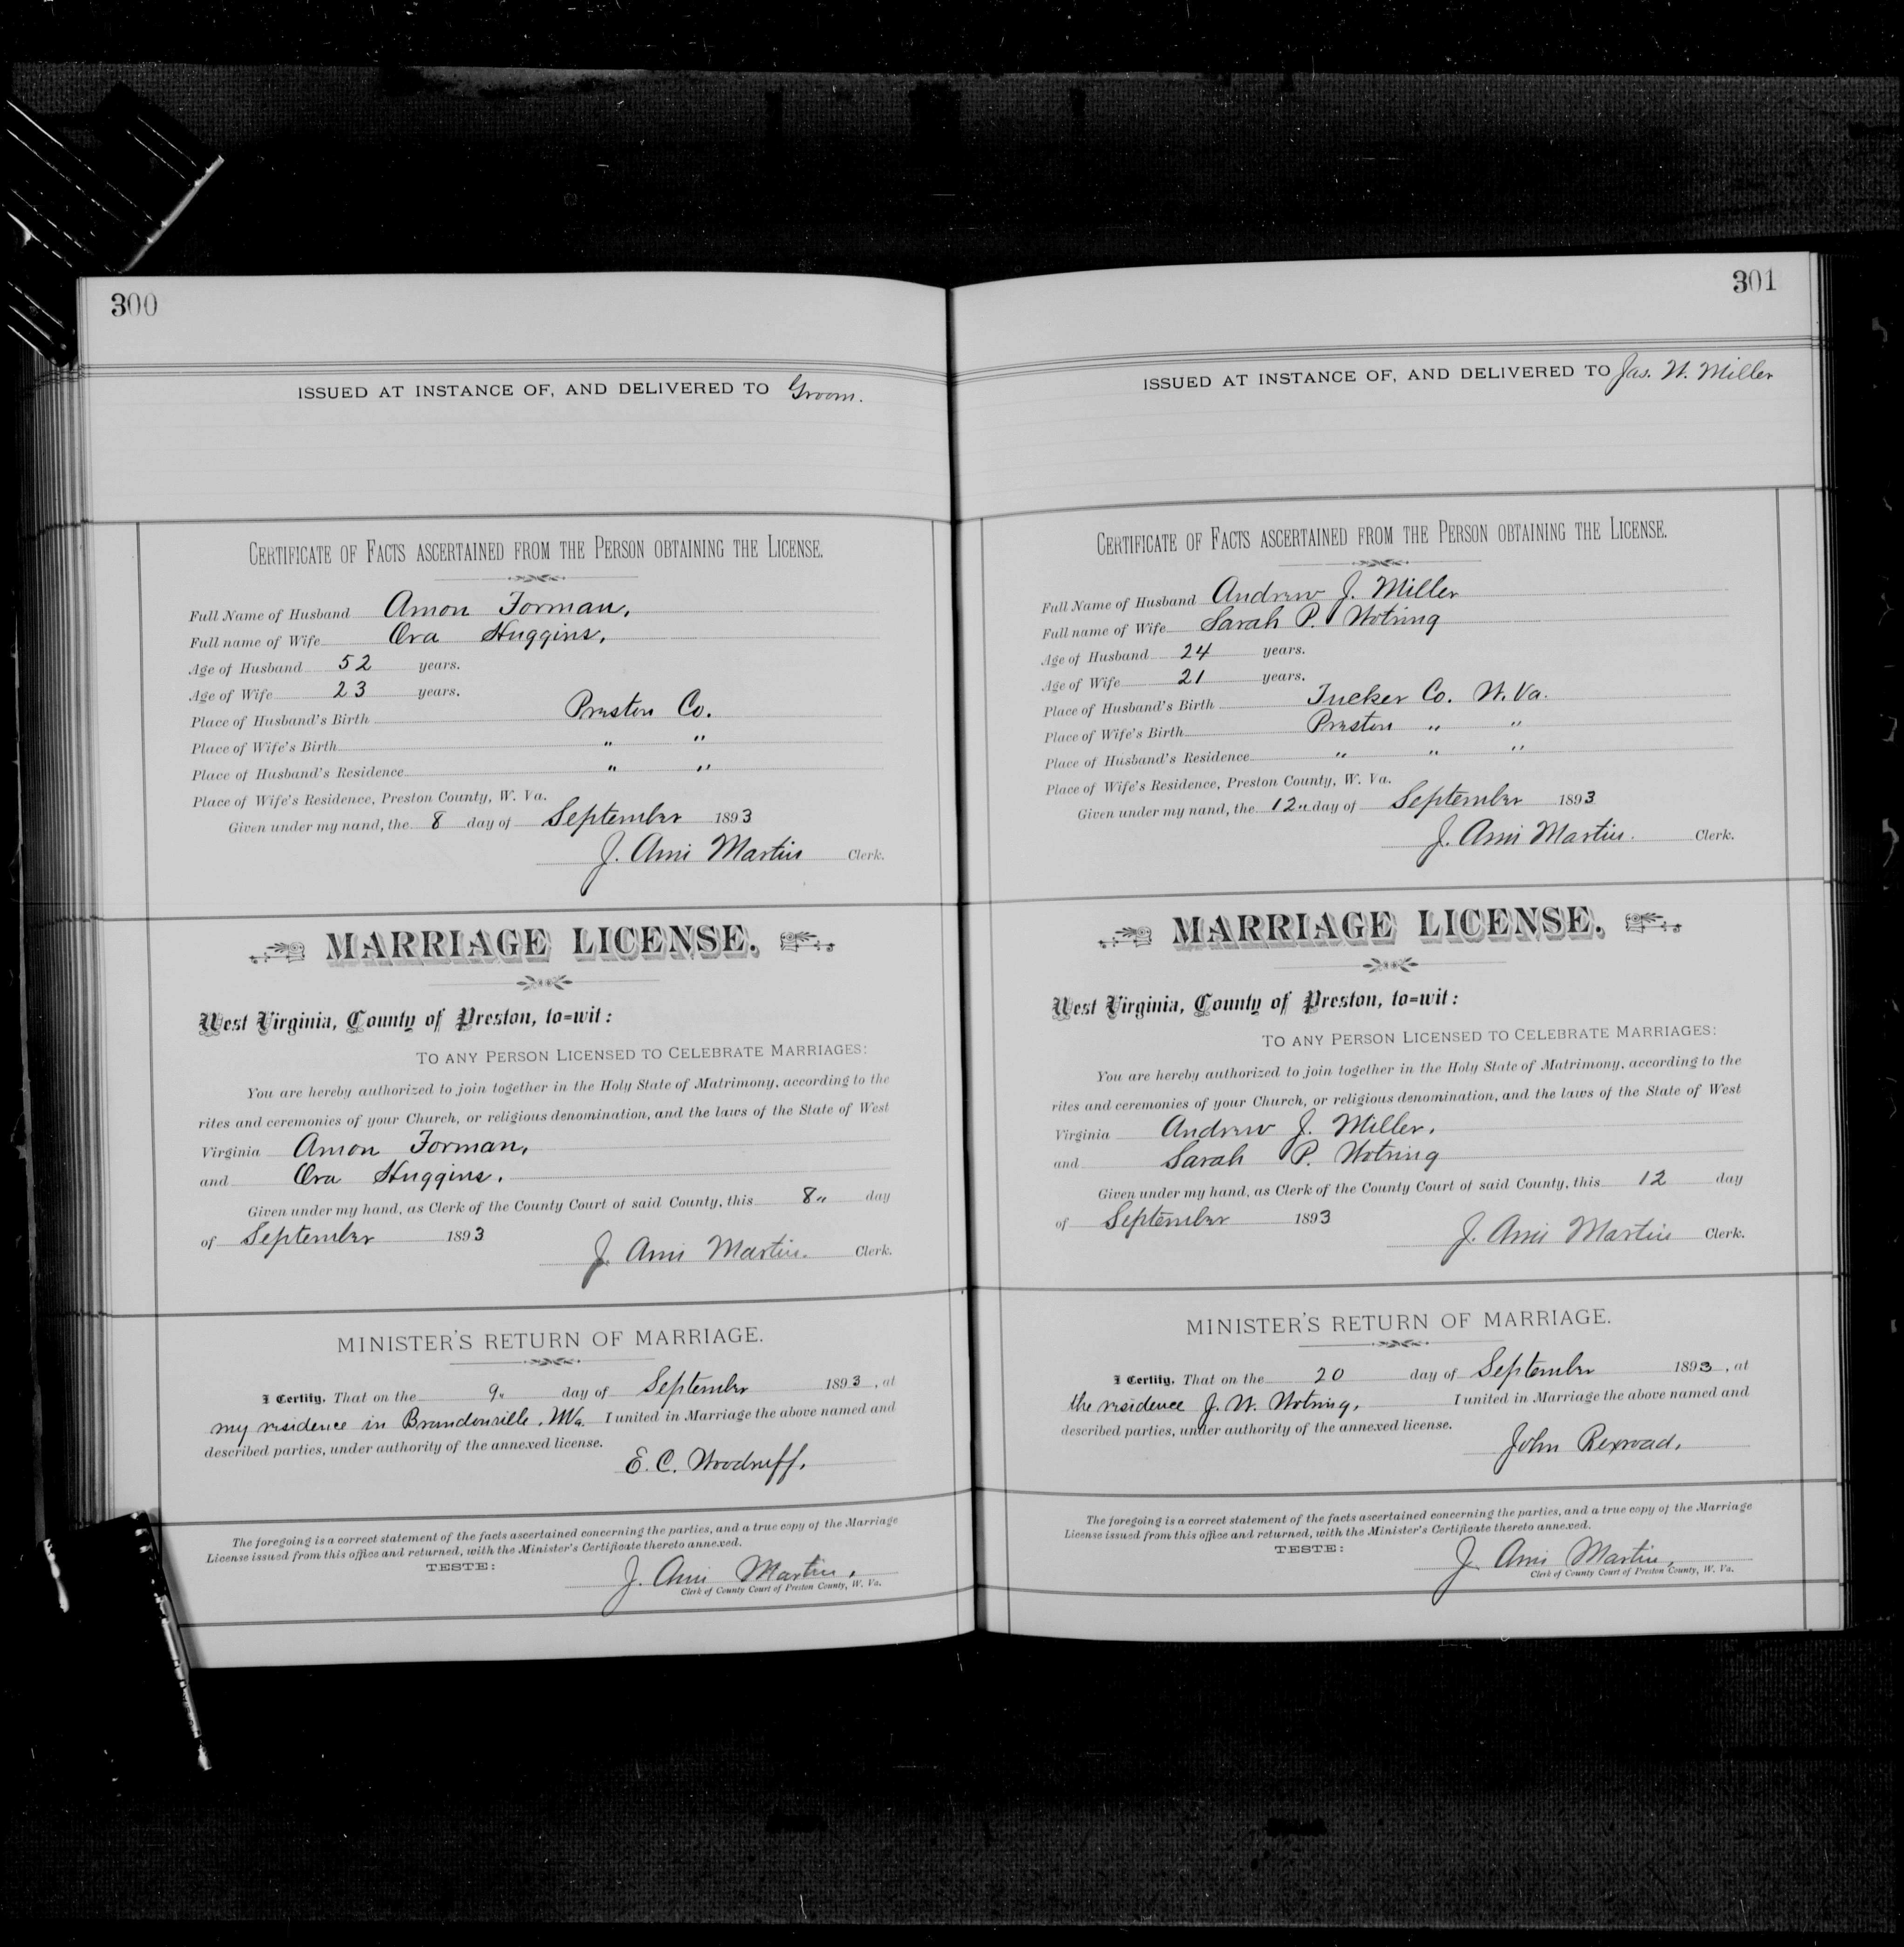 300
ISSUED AT INSTANCE OF, AND DELIVERED TO Groom.
CERTIFICATE OF FACTS ASCERTAINED FROM THE PERSON OBTAINING THE LICENSE.
Full Name of Husband Amon Forman,
Full name of Wife Ora Huggins,
Age of Husband 52 years.
Age of Wife 23 years.
Place of Husband's Birth Preston Co.
Place of Wife's Birth " "
Place of Husband's Residence " "
Place of Wife's Residence, Preston County, W. Va.
Given under my nand, the 8 day of September 1893
J. Ami Martin Clerk.
MARRIAGE LICENSE.
West Virginia, County of Preston, to=wit:
TO ANY PERSON LICENSED TO CELEBRATE MARRIAGES:
You are hereby authorized to join together in the Holy State of Matrimony, according to the
rites and ceremonies of your Church, or religious denomination, and the laws of the State of West
Virginia Amon Forman,
and Ora Huggins.
Given under my hand, as Clerk of the County Court of said County, this 8" day
of September 1893
J. Ami Martin. Clerk.
MINISTER'S RETURN OF MARRIAGE.
I Certify, That on the 9" day of September 1893, at
my residence in Brandonville, WVa. I united in Marriage the above named and
described parties, under authority of the annexed license.
E. C. Woodruff.
The foregoing is a correct statement of the facts ascertained concerning the parties, and a true copy of the Marriage
License issued from this office and returned, with the Minister's Certificate thereto annexed.
TESTE:
J. Ami Martin,
Clerk of County Court of Preston County, W. Va.
301
ISSUED AT INSTANCE OF, AND DELIVERED TO Jas. W. Miller
CERTIFICATE OF FACTS ASCERTAINED FROM THE PERSON OBTAINING THE LICENSE.
Full Name of Husband Andrew J. Miller
Full name of Wife Sarah P. Wotring
Age of Husband 24 years.
Age of Wife 21 years.
Place of Husband's Birth Tucker Co. W. Va.
Place of Wife's Birth Preston " "
Place of Husband's Residence " " "
Place of Wife's Residence, Preston County, W. Va.
Given under my nand, the 12" day of September 1893
J. Ami Martin. Clerk.
MARRIAGE LICENSE.
West Virginia, County of Preston, to=wit:
TO ANY PERSON LICENSED TO CELEBRATE MARRIAGES:
You are hereby authorized to join together in the Holy State of Matrimony, according to the
rites and ceremonies of your Church, or religious denomination, and the laws of the State of West
Virginia Andrew J. Miller.
and Sarah P. Wotring
Given under my hand, as Clerk of the County Court of said County, this 12 day
of September 1893
J. Ami Martin Clerk.
MINISTER'S RETURN OF MARRIAGE.
I Certify, That on the 20 day of September 1893, at
the residence J. W. Wotring, I united in Marriage the above named and
described parties, under authority of the annexed license.
John Rexroad,
The foregoing is a correct statement of the facts ascertained concerning the parties, and a true copy of the Marriage
License issued from this office and returned, with the Minister's Certificate thereto annexed.
TESTE:
J. Ami Martin,
Clerk of County Court of Preston County, W. Va.